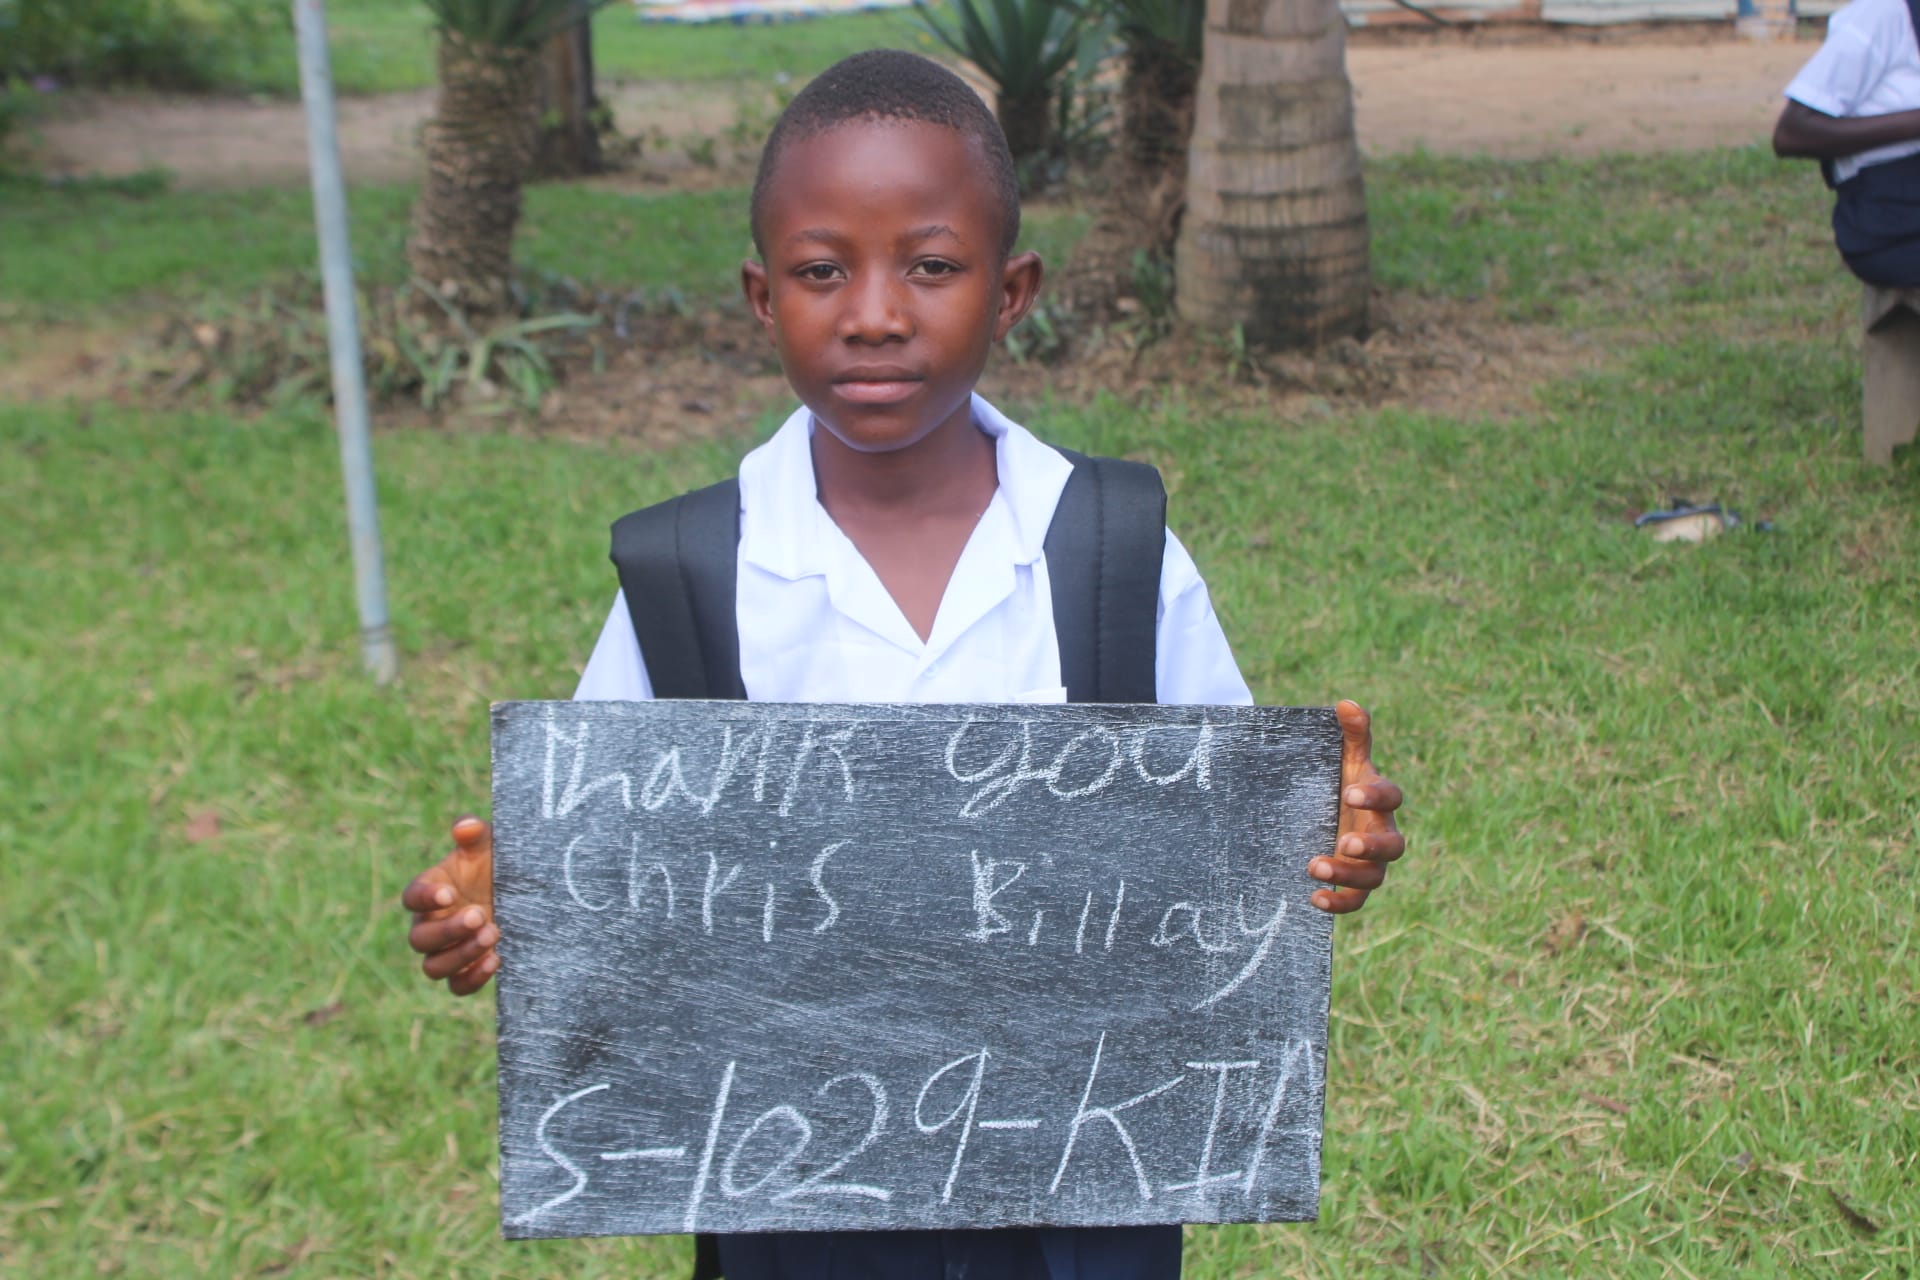 Thank you
Chris Billay
S-1029-KIA